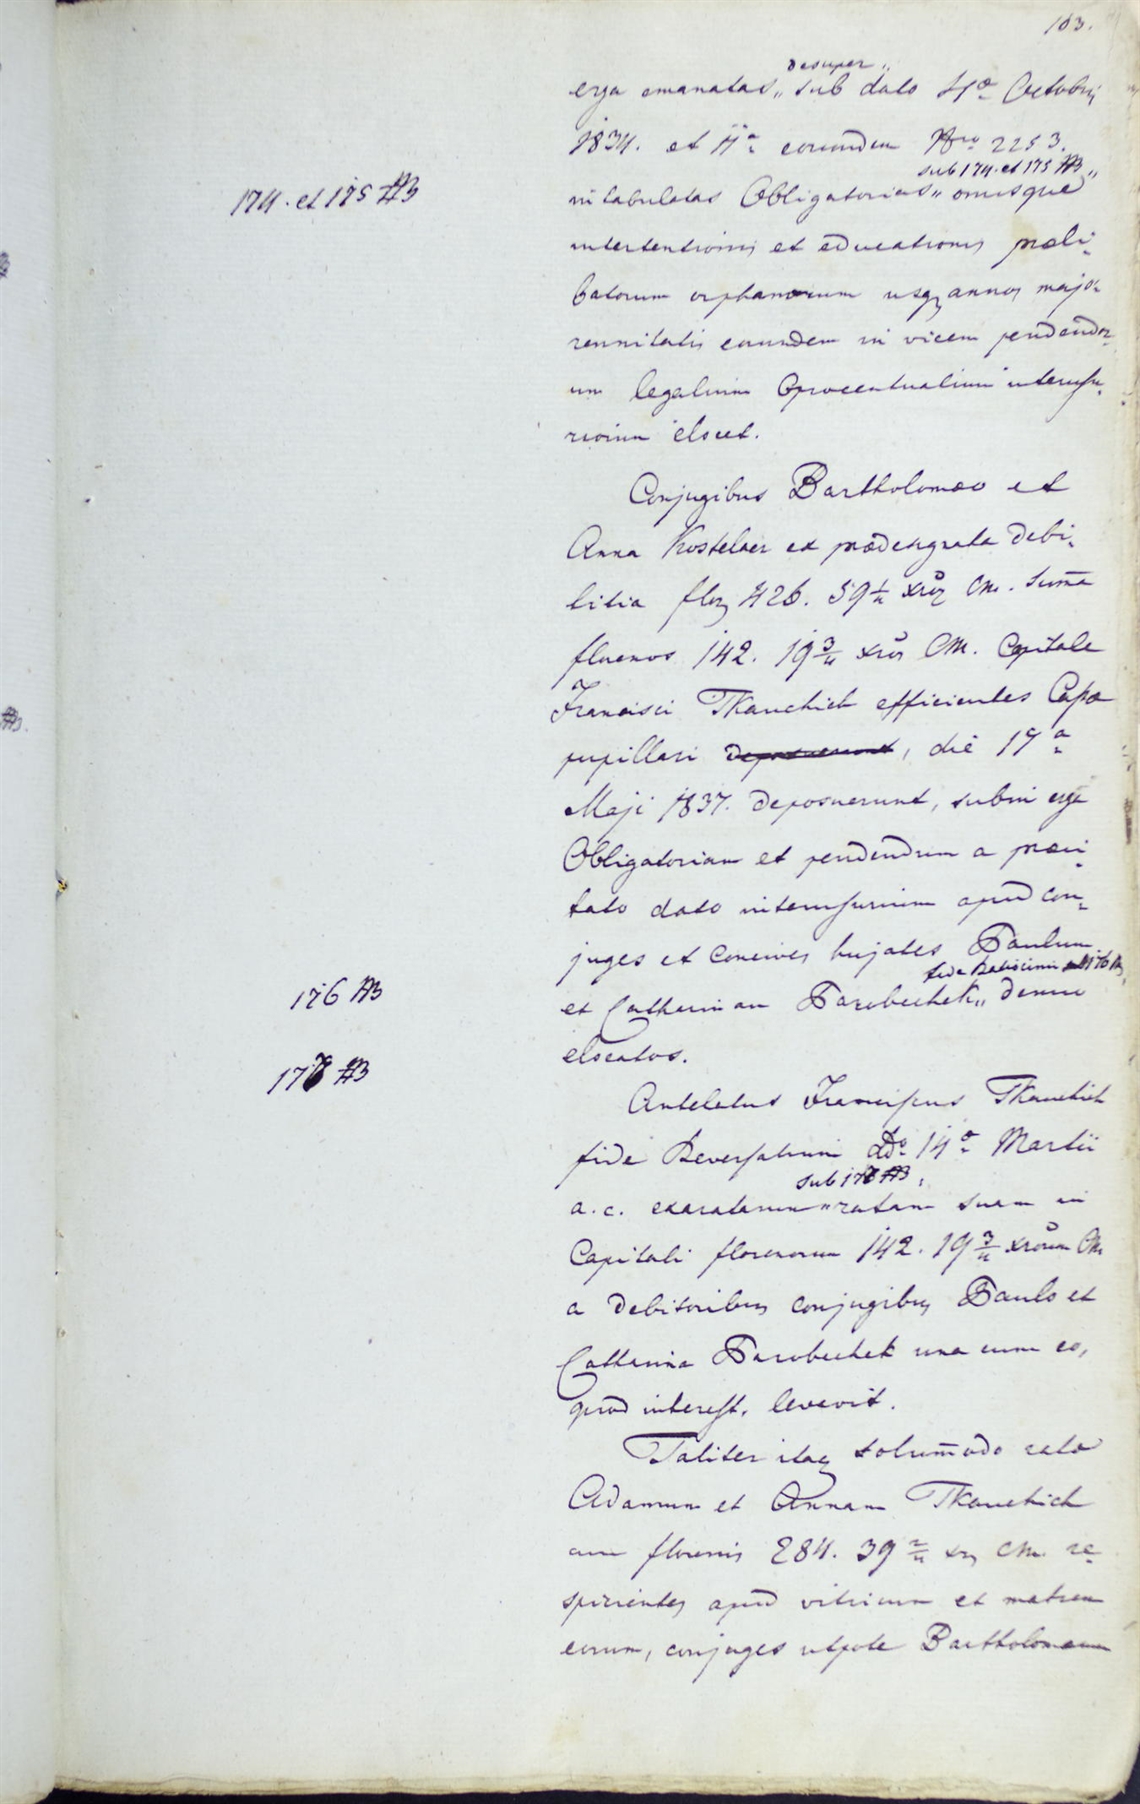 103.
desuper „
erga emanatas „ sub dato 4ta Octobris
1834. et 11a eorundem Nro 2253.
sub 174. et 175 AB „
174. et 175 AB
intabulatas Obligatorias „ onusque
intertentionis et educationis præli-
batorum orphanorum usq annos majo-
rennitatis eorundem in vicem pendendor-
um legalium 6procentualium interusu-
riorum elocet.
Conjugibus Bartholomæo et
Anna Kostelaer ex prædesignata debi-
litia flor 426. 59 1/4 xror CM. Summa
florenos 142. 19 3/4 xror CM. Capitale
Francisci Tkauchich efficientes Cassæ
pupillari deposuerunt, die 19a
Maji 1837. deposuerunt, subin erga
Obligatoriam et pendendum a præci-
tato dato interusurium apud con-
juges et concives hujates Paulum
176 AB
et Catharinam Parobechek „ denuo
elocatos.
177 AB
Antelatus Franciscus Tkauchich
fide Reversalium Ddo 14a Martii
a. c. exaratarum „ ratam suam in
Capitali florenorum 142. 19 3/4 xrorum CM
a debitoribus conjugibus Paulo et
Catharina Parobechek una cum eo,
quod interest, levavit.
Taliter itaq solummodo rata
Adamum et Annam Tkauchich
cum florenis 284. 39 2/4 xr CM. re-
spicientes apud vitricum et matrem
eorum, conjuges utpote Bartholomæum